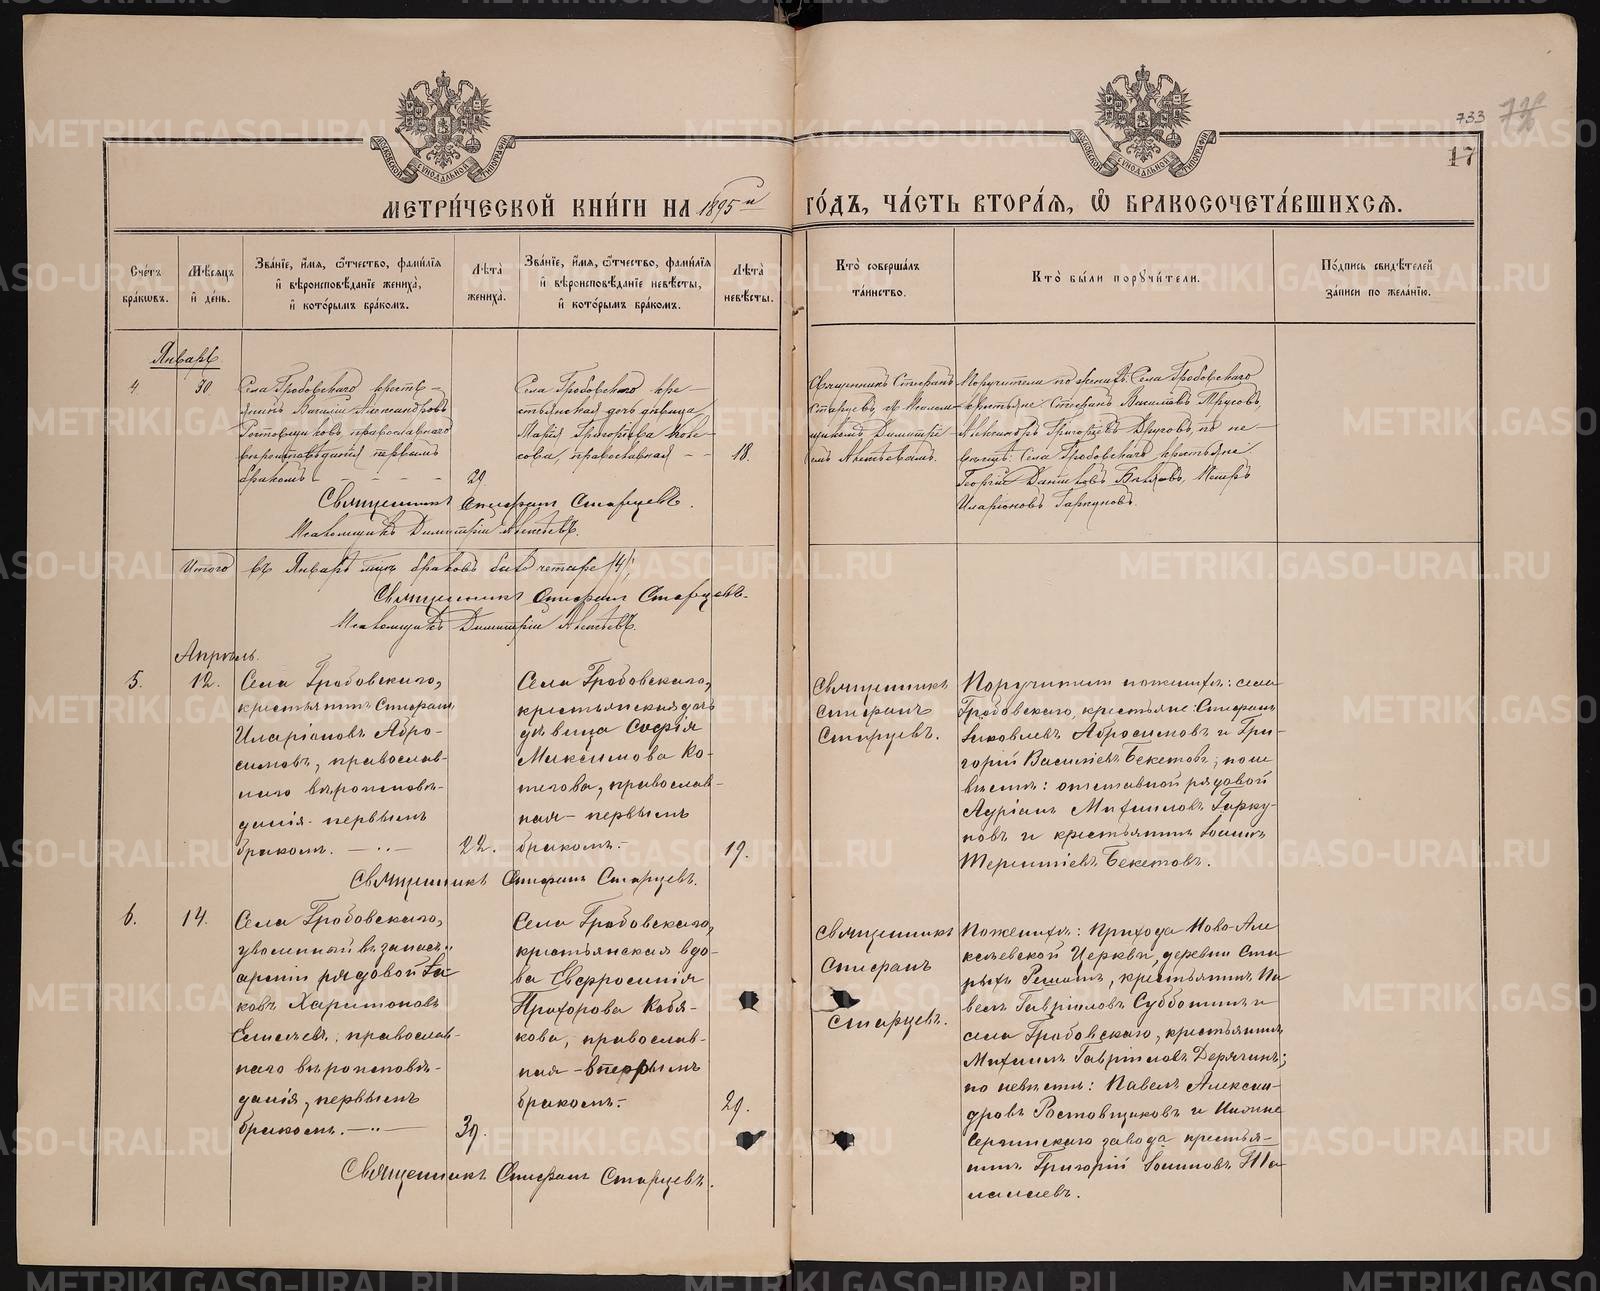 733
17
МЕТРИ́ЧЕСКОЙ КНИ́ГИ НА 1895й ГО́ДЪ, ЧА́СТЬ ВТОРА́Я, Ѽ БРАКОСОЧЕТА́ВШИХСЯ.
Сче́тъ бра́кωвъ.
Мѣ́сяцъ и҆ де́нь.
Зва́нїе, и҆́мя, ѻ҆́тчество, фами́лїя
и҆ вѣроисповѣ́данїе жениха̀,
и҆ кото́рымъ бра́комъ.
Лѣ́та жениха̀.
Зва́нїе, и҆́мя, ѻ҆́тчество, фами́лїя
и҆ вѣроисповѣ́данїе невѣ́сты,
и҆ кото́рымъ бра́комъ.
Лѣ́та невѣ́сты.
Кто̀ соверша́лъ
та́инство.
Кто̀ бы́ли порꙋчи́тели.
По́дпись свидѣ́телей
за́писи по жела́нїю.
Январь
4
30.
Села Гробовскаго кресть-
янинъ Василій Александровъ
Ростовщиковъ, православнаго
вѣроисповѣданія первымъ
бракомъ
29
Села Гробовскаго кре-
стьянская дочь дѣвица
Марія Григорьева
православная
18.
Священникъ Стефанъ
Старцевъ, съ Псалом-
щикомъ Димитрі-
емъ
Поручители по женихѣ: Села Гробовскаго
крестьяне: Стефанъ Васильевъ
Александръ Григорьевъ по не-
вѣстѣ: Села Гробовскаго крестьяне:
Георгій Петръ
Иларіоновъ Гаркуновъ.
Священникъ Стефанъ Старцевъ.
Псаломщикъ Димитрій
Итого въ Январѣ мцѣ браковъ было четыре /4/,
Священникъ Стефанъ Старцевъ.
Псаломщикъ Димитрій
Апрѣль.
5.
12.
Села Гробовскаго,
крестьянинъ Стефанъ
Иларіоновъ Абро-
симовъ, православ-
наго вѣроисповѣ-
данія - первымъ
бракомъ.
22.
Села Гробовскаго,
крестьянская дочь
дѣвица Софія
Максимова Ко-
тегова, православ-
ная - первымъ
бракомъ.
19.
Священникъ
Стефанъ
Старцевъ.
Поручители по женихѣ: села
Гробовскаго, крестьяне: Стефанъ
Іаковлевъ Абросимовъ и Гри-
горій Васильевъ Бекетовъ; по не
вѣстѣ: отставной рядовой
Адріанъ Михаиловъ Гарку-
новъ и крестьянинъ Іоаннъ
Терентіевъ Бекетовъ.
Священникъ Стефанъ Старцевъ.
6.
14.
Села Гробовскаго,
уволенный въ запасъ
арміи рядовой Іа-
ковъ Харитоновъ
Елисѣевъ, православ-
наго вѣроисповѣ-
данія, первымъ
бракомъ.
39.
Села Гробовскаго,
крестьянская вдо-
ва Евфросинія
Прохорова Кобя-
кова, православ-
ная - вторымъ
бракомъ.
29.
Священникъ
Стефанъ
Старцевъ.
По женихѣ: Прихода Ново-Але
ксѣевской Церкви, деревни Ста-
рыхъ Решетъ, крестьянинъ Па-
велъ Гавріиловъ Субботинъ и
села Гробовскаго, крестьянинъ
Михаилъ Гавріиловъ Дерягинъ;
по невѣстѣ: Павелъ Алексан-
дровъ Ростовщиковъ и Нижне
Сергинскаго завода крестья-
нинъ Григорій Іоанновъ
Священникъ Стефанъ Старцевъ.
METRIKI.GASO-URAL.RU